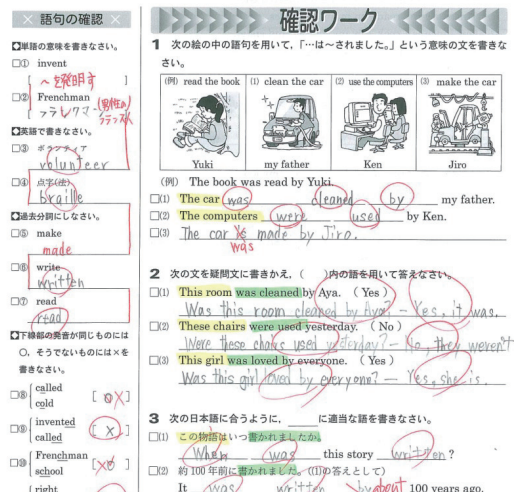 語句の確認
単語の意味を書きなさい。
① invent
[ 〜を発明す ]
② Frenchman
(男性の)
フランス人
英語で書きなさい。
③ ボランティア
volunteer
④ 点字(法)
braille
過去分詞にしなさい。
⑤ make
made
⑥ write
written
⑦ read
read
下線部の発音が同じものには
○, そうでないものには×を
書きなさい。
⑧ called
cold
[ × ]
⑨ invented
called
[ × ]
⑩ Frenchman
school
right
確認ワーク
1 次の絵の中の語句を用いて,「…は〜されました。」という意味の文を書きな
さい。
(例) read the book
(1) clean the car
(2) use the computers
(3) make the car
Yuki
my father
Ken
Jiro
(例) The book was read by Yuki.
(1) The car was cleaned by my father.
(2) The computers were used by Ken.
(3) The car is made by Jiro.
was
2 次の文を疑問文に書きかえ, ( )内の語を用いて答えなさい。
(1) This room was cleaned by Aya. ( Yes )
Was this room cleaned by Aya? — Yes, it was.
(2) These chairs were used yesterday. ( No )
Were these chairs used yesterday? — No, they weren't
(3) This girl was loved by everyone. ( Yes )
Was this girl loved by everyone? — Yes, she is.
3 次の日本語に合うように, ____ に適当な語を書きなさい。
(1) この物語はいつ書かれましたか。
When was this story written ?
(2) 約100年前に書かれました。((1)の答えとして)
It was written by about 100 years ago.